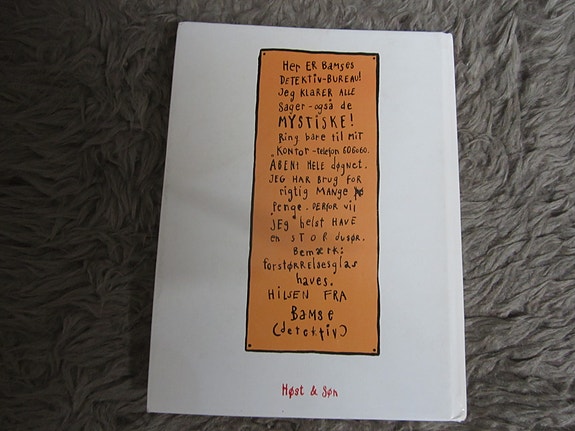 Her ER Bamses
DETEKTIV-BUREAU!
Jeg KLARER ALLE
Sager - også de
MYSTISKE!
Ring bare til MIT
KONTOR - telefon 606060.
ÅBENT HELE døgnet.
JEG HAR BRUG FOR
rigtig MANGE
Penge. DERFOR vil
jEg helst HAVE
en STOR dusør.
Bemærk:
forstørrelsesglas
haves.
HILSEN FRA
Bamse
(detektiv)
Høst & Søn